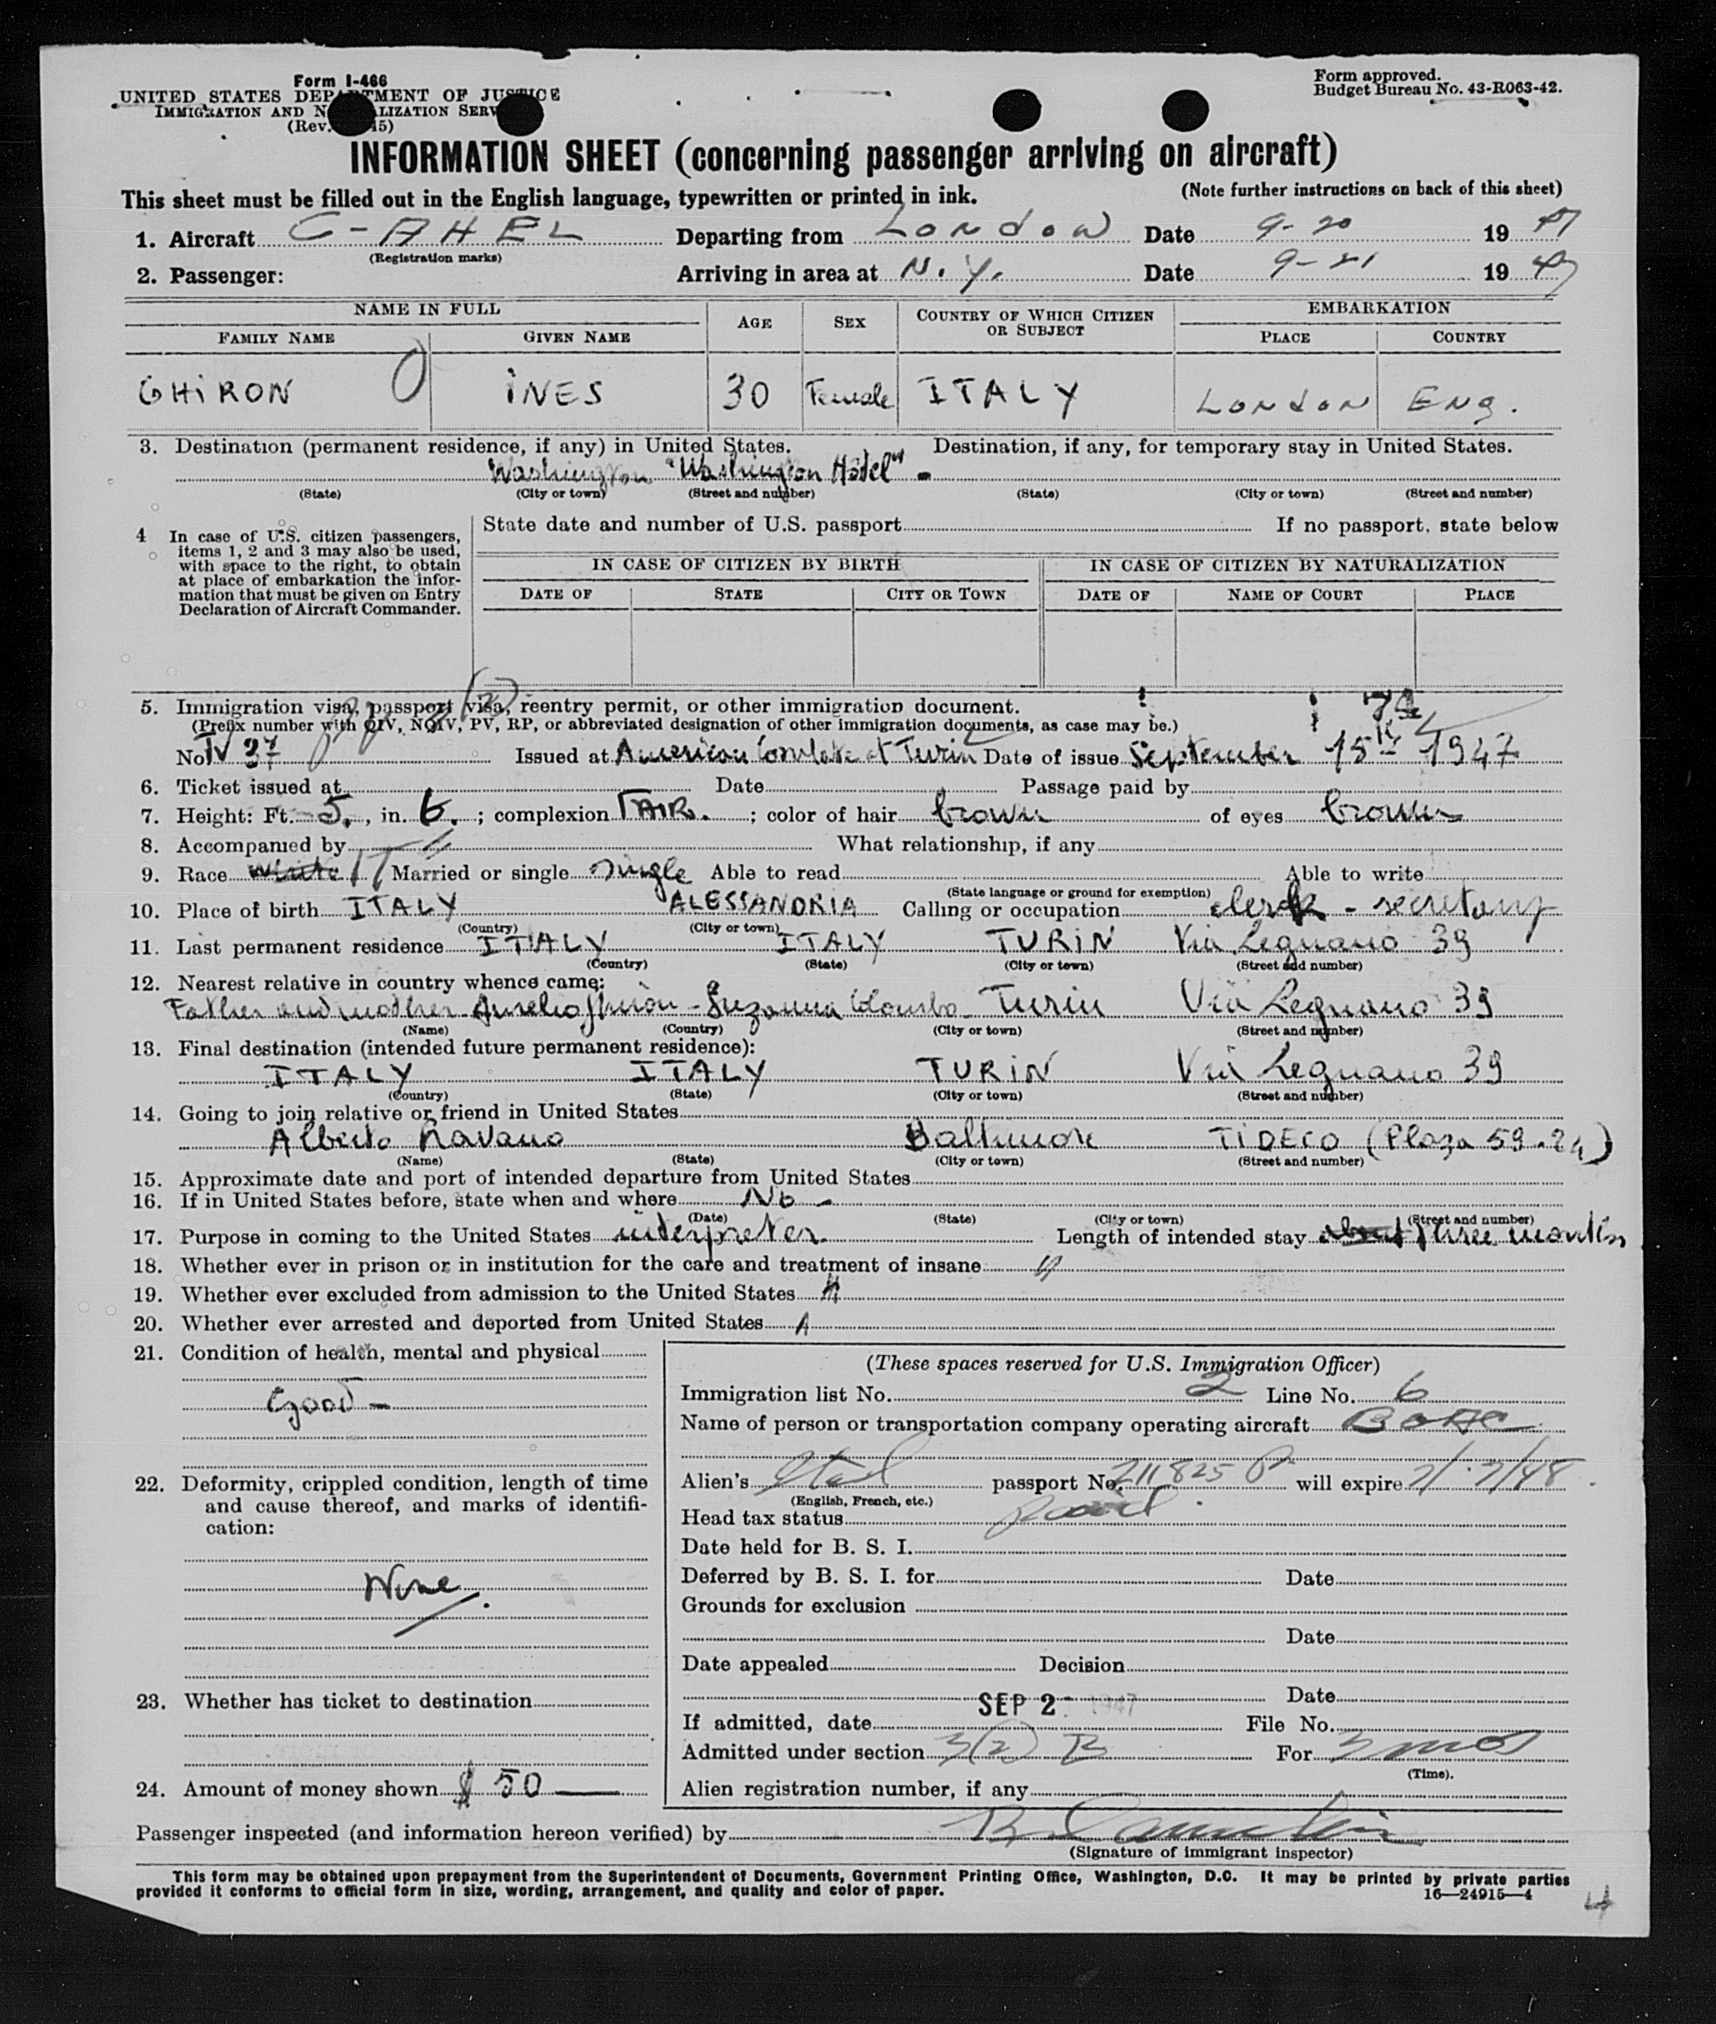 Form I-466
UNITED STATES DEPARTMENT OF JUSTICE
IMMIGRATION AND NATURALIZATION SERV
(Rev. 45)
Form approved.
Budget Bureau No. 43-R063-42.
INFORMATION SHEET (concerning passenger arriving on aircraft)
This sheet must be filled out in the English language, typewritten or printed in ink. (Note further instructions on back of this sheet)
1. Aircraft G-AHEL Departing from LONDON Date 9-20 1947
(Registration marks)
2. Passenger: Arriving in area at N.Y. Date 9-21 1947
NAME IN FULL AGE SEX COUNTRY OF WHICH CITIZEN OR SUBJECT EMBARKATION
FAMILY NAME GIVEN NAME PLACE COUNTRY
GHIRON INES 30 Female ITALY LONDON ENG.
3. Destination (permanent residence, if any) in United States. Destination, if any, for temporary stay in United States.
Washington "Washington Hotel" -
(State) (City or town) (Street and number) (State) (City or town) (Street and number)
4 In case of U.S. citizen passengers, items 1, 2 and 3 may also be used, with space to the right, to obtain at place of embarkation the information that must be given on Entry Declaration of Aircraft Commander.
State date and number of U.S. passport If no passport, state below
IN CASE OF CITIZEN BY BIRTH IN CASE OF CITIZEN BY NATURALIZATION
DATE OF STATE CITY OR TOWN DATE OF NAME OF COURT PLACE
5. Immigration visa, passport visa, reentry permit, or other immigration document.
(Prefix number with QIV, NQIV, PV, RP, or abbreviated designation of other immigration documents, as case may be.)
No. 37 Issued at American Consulate at Turin Date of issue September 15th 1947
6. Ticket issued at Date Passage paid by
7. Height: Ft. 5, in. 6. ; complexion FAIR. ; color of hair brown of eyes brown
8. Accompanied by What relationship, if any
9. Race white IT Married or single single Able to read Able to write
(State language or ground for exemption)
10. Place of birth ITALY ALESSANDRIA Calling or occupation clerk - secretary
(Country) (City or town)
11. Last permanent residence ITALY ITALY TURIN Via Legnano 39
(Country) (State) (City or town) (Street and number)
12. Nearest relative in country whence came:
Father and mother Aurelio Ghiron - Suzanna Colombo - Turin Via Legnano 39
(Name) (Country) (City or town) (Street and number)
13. Final destination (intended future permanent residence):
ITALY ITALY TURIN Via Legnano 39
(Country) (State) (City or town) (Street and number)
14. Going to join relative or friend in United States
Alberto Ravano Baltimore TIDECO (Plaza 59.24)
(Name) (State) (City or town) (Street and number)
15. Approximate date and port of intended departure from United States
16. If in United States before, state when and where No -
(Date) (State) (City or town) (Street and number)
17. Purpose in coming to the United States interpreter. Length of intended stay about three months
18. Whether ever in prison or in institution for the care and treatment of insane
19. Whether ever excluded from admission to the United States
20. Whether ever arrested and deported from United States
21. Condition of health, mental and physical
Good -
22. Deformity, crippled condition, length of time and cause thereof, and marks of identification:
None.
23. Whether has ticket to destination
24. Amount of money shown $ 50
(These spaces reserved for U.S. Immigration Officer)
Immigration list No. 2 Line No. 6
Name of person or transportation company operating aircraft BOAC
Alien's Ital passport No. 211825 P will expire 7/7/48
(English, French, etc.)
Head tax status paid.
Date held for B. S. I.
Deferred by B. S. I. for Date
Grounds for exclusion
Date
Date appealed Decision
Date
If admitted, date SEP 2 1947 File No.
Admitted under section 3(2) B For 3 mos
(Time).
Alien registration number, if any
Passenger inspected (and information hereon verified) by
(Signature of immigrant inspector)
This form may be obtained upon prepayment from the Superintendent of Documents, Government Printing Office, Washington, D.C. It may be printed by private parties
provided it conforms to official form in size, wording, arrangement, and quality and color of paper.
16—24915—4
4